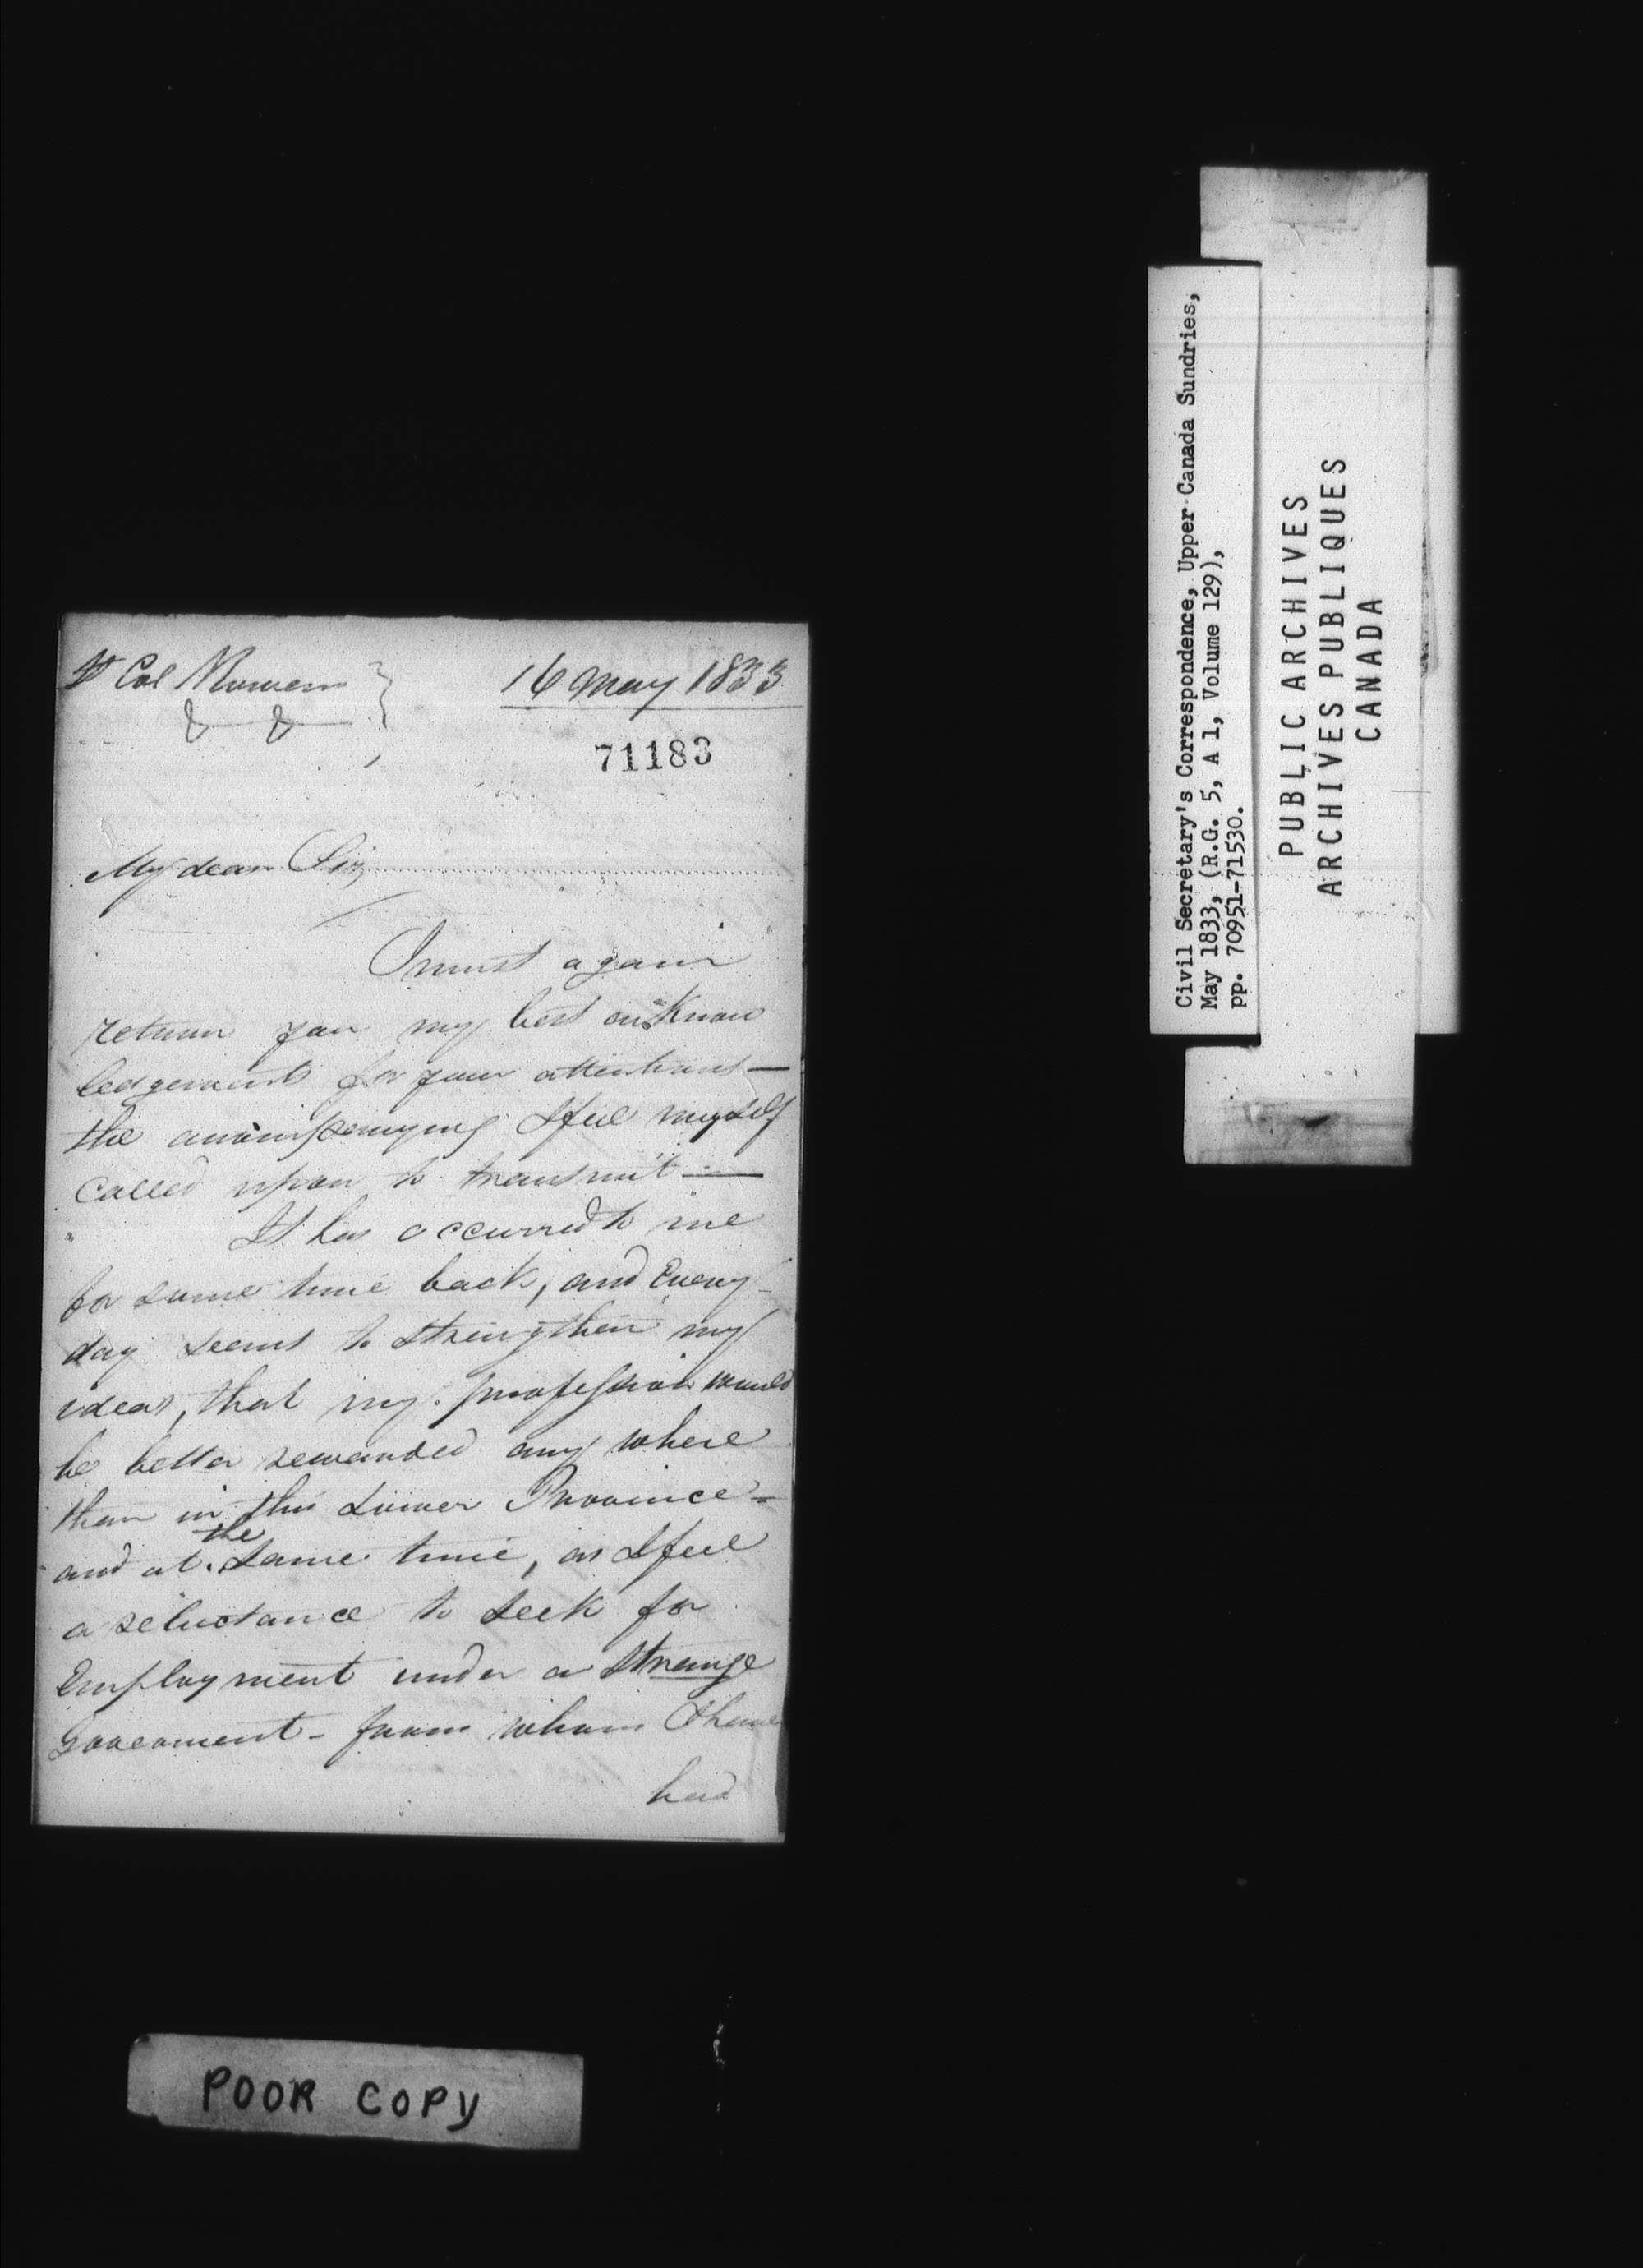 Lt Col Rowan
& &
16 May 1833
71183
My dear Sir,
I must again
return you my best acknow
ledgements for your attentions —
the accompanying I feel myself
called upon to transmit —
It has occurred to me
for some time back, and every
day seems to strengthen my
ideas, that my profession would
be better rewarded any where
than in this Lower Province =
and at the same time, as I feel
a reluctance to seek for
Employment under a Strange
Government - from whom I have
had
POOR COPY
Civil Secretary's Correspondence, Upper Canada Sundries,
May 1833, (R.G. 5, A 1, Volume 129),
pp. 70951-71530.
PUBLIC ARCHIVES
ARCHIVES PUBLIQUES
CANADA